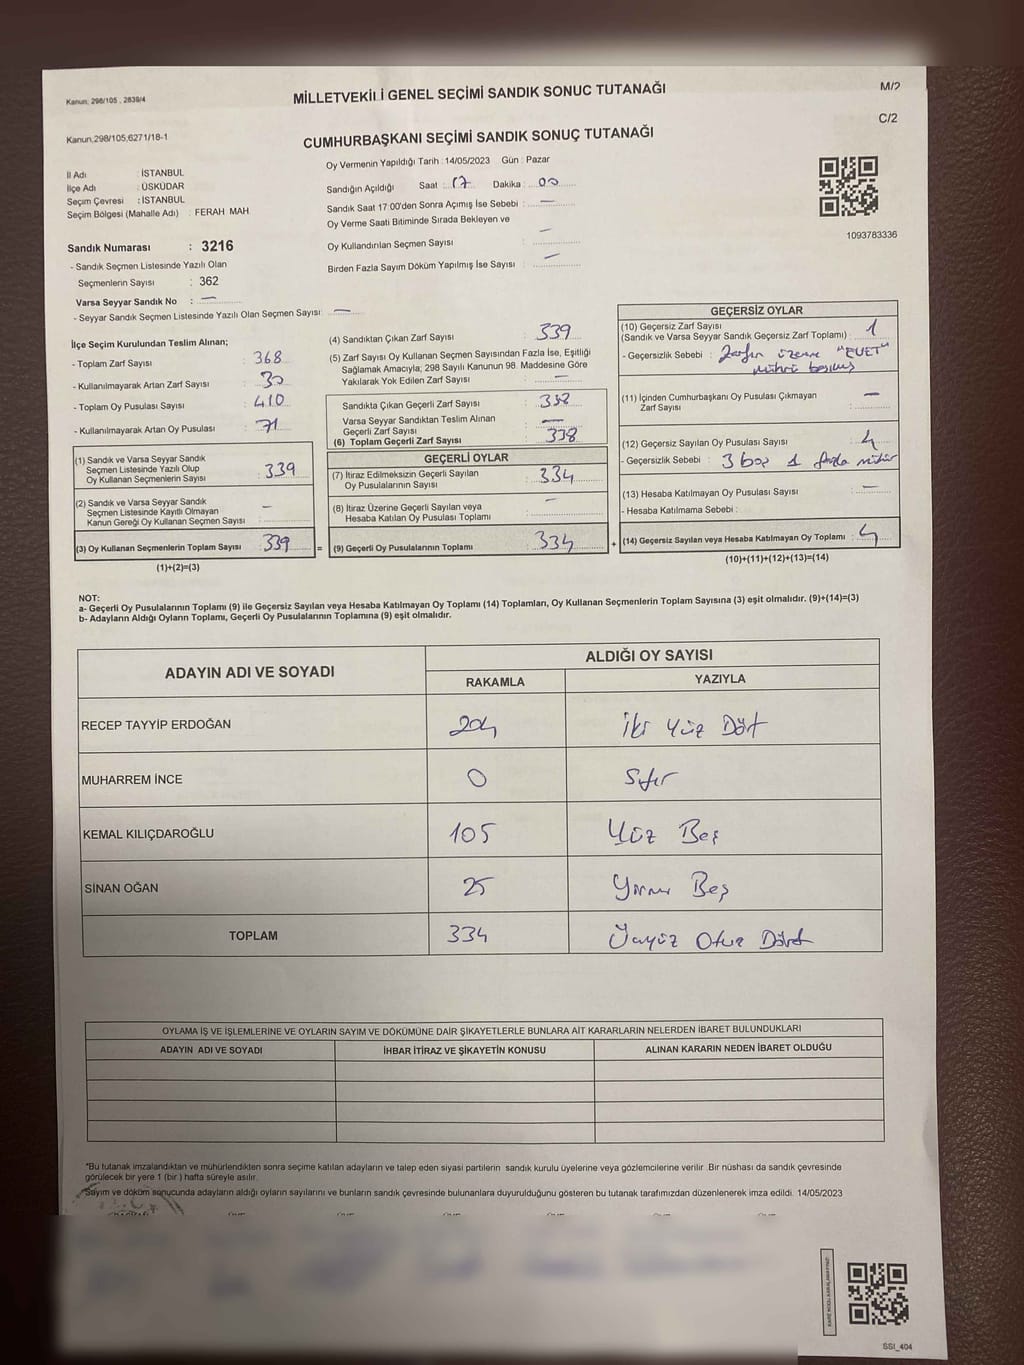 Kanun; 298/105 , 2839/4
MİLLETVEKİLİ GENEL SEÇİMİ SANDIK SONUC TUTANAĞI
M/2
Kanun,298/105,6271/18-1
CUMHURBAŞKANI SEÇİMİ SANDIK SONUÇ TUTANAĞI
C/2
İl Adı : İSTANBUL
İlçe Adı : ÜSKÜDAR
Seçim Çevresi : İSTANBUL
Seçim Bölgesi (Mahalle Adı) : FERAH MAH
Sandık Numarası : 3216
- Sandık Seçmen Listesinde Yazılı Olan
Seçmenlerin Sayısı : 362
Varsa Seyyar Sandık No : —
- Seyyar Sandık Seçmen Listesinde Yazılı Olan Seçmen Sayısı: —
Oy Vermenin Yapıldığı Tarih : 14/05/2023 Gün : Pazar
Sandığın Açıldığı Saat : 17 Dakika : 00
Sandık Saat 17:00'den Sonra Açımış İse Sebebi : —
Oy Verme Saati Bitiminde Sırada Bekleyen ve
Oy Kullandırılan Seçmen Sayısı : —
Birden Fazla Sayım Döküm Yapılmış İse Sayısı : —
1093783336
İlçe Seçim Kurulundan Teslim Alınan;
- Toplam Zarf Sayısı : 368
- Kullanılmayarak Artan Zarf Sayısı : 30
- Toplam Oy Pusulası Sayısı : 410
- Kullanılmayarak Artan Oy Pusulası : 71
(1) Sandık ve Varsa Seyyar Sandık
Seçmen Listesinde Yazılı Olup
Oy Kullanan Seçmenlerin Sayısı : 339
(2) Sandık ve Varsa Seyyar Sandık
Seçmen Listesinde Kayıtlı Olmayan
Kanun Gereği Oy Kullanan Seçmen Sayısı : —
(3) Oy Kullanan Seçmenlerin Toplam Sayısı : 339
(1)+(2)=(3)
(4) Sandıktan Çıkan Zarf Sayısı : 339
(5) Zarf Sayısı Oy Kullanan Seçmen Sayısından Fazla İse, Eşitliği
Sağlamak Amacıyla; 298 Sayılı Kanunun 98. Maddesine Göre
Yakılarak Yok Edilen Zarf Sayısı : —
Sandıkta Çıkan Geçerli Zarf Sayısı : 338
Varsa Seyyar Sandıktan Teslim Alınan
Geçerli Zarf Sayısı : —
(6) Toplam Geçerli Zarf Sayısı : 338
GEÇERLİ OYLAR
(7) İtiraz Edilmeksizin Geçerli Sayılan
Oy Pusulalarının Sayısı : 334
(8) İtiraz Üzerine Geçerli Sayılan veya
Hesaba Katılan Oy Pusulası Toplamı : —
= (9) Geçerli Oy Pusulalarının Toplamı : 334
GEÇERSİZ OYLAR
(10) Geçersiz Zarf Sayısı
(Sandık ve Varsa Seyyar Sandık Geçersiz Zarf Toplamı) : 1
- Geçersizlik Sebebi : Zarfın üzerine "EVET"
mührü basılmış
(11) İçinden Cumhurbaşkanı Oy Pusulası Çıkmayan
Zarf Sayısı : —
(12) Geçersiz Sayılan Oy Pusulası Sayısı : 4
- Geçersizlik Sebebi : 3 boş 1 fazla mühür
(13) Hesaba Katılmayan Oy Pusulası Sayısı : —
- Hesaba Katılmama Sebebi :
+ (14) Geçersiz Sayılan veya Hesaba Katılmayan Oy Toplamı : 4
(10)+(11)+(12)+(13)=(14)
NOT:
a- Geçerli Oy Pusulalarının Toplamı (9) ile Geçersiz Sayılan veya Hesaba Katılmayan Oy Toplamı (14) Toplamları, Oy Kullanan Seçmenlerin Toplam Sayısına (3) eşit olmalıdır. (9)+(14)=(3)
b- Adayların Aldığı Oyların Toplamı, Geçerli Oy Pusulalarının Toplamına (9) eşit olmalıdır.
ADAYIN ADI VE SOYADI
ALDIĞI OY SAYISI
RAKAMLA YAZIYLA
RECEP TAYYİP ERDOĞAN 204 İki Yüz Dört
MUHARREM İNCE 0 Sıfır
KEMAL KILIÇDAROĞLU 105 Yüz Beş
SİNAN OĞAN 25 Yirmi Beş
TOPLAM 334 Üçyüz Otuz Dört
OYLAMA İŞ VE İŞLEMLERİNE VE OYLARIN SAYIM VE DÖKÜMÜNE DAİR ŞİKAYETLERLE BUNLARA AİT KARARLARIN NELERDEN İBARET BULUNDUKLARI
ADAYIN ADI VE SOYADI İHBAR İTİRAZ VE ŞİKAYETİN KONUSU ALINAN KARARIN NEDEN İBARET OLDUĞU
*Bu tutanak imzalandıktan ve mühürlendikten sonra seçime katılan adayların ve talep eden siyasi partilerin sandık kurulu üyelerine veya gözlemcilerine verilir .Bir nüshası da sandık çevresinde
görülecek bir yere 1 (bir ) hafta süreyle asılır.
*Sayım ve döküm sonucunda adayların aldığı oyların sayılarını ve bunların sandık çevresinde bulunanlara duyurulduğunu gösteren bu tutanak tarafımızdan düzenlenerek imza edildi. 14/05/2023
SSI_404